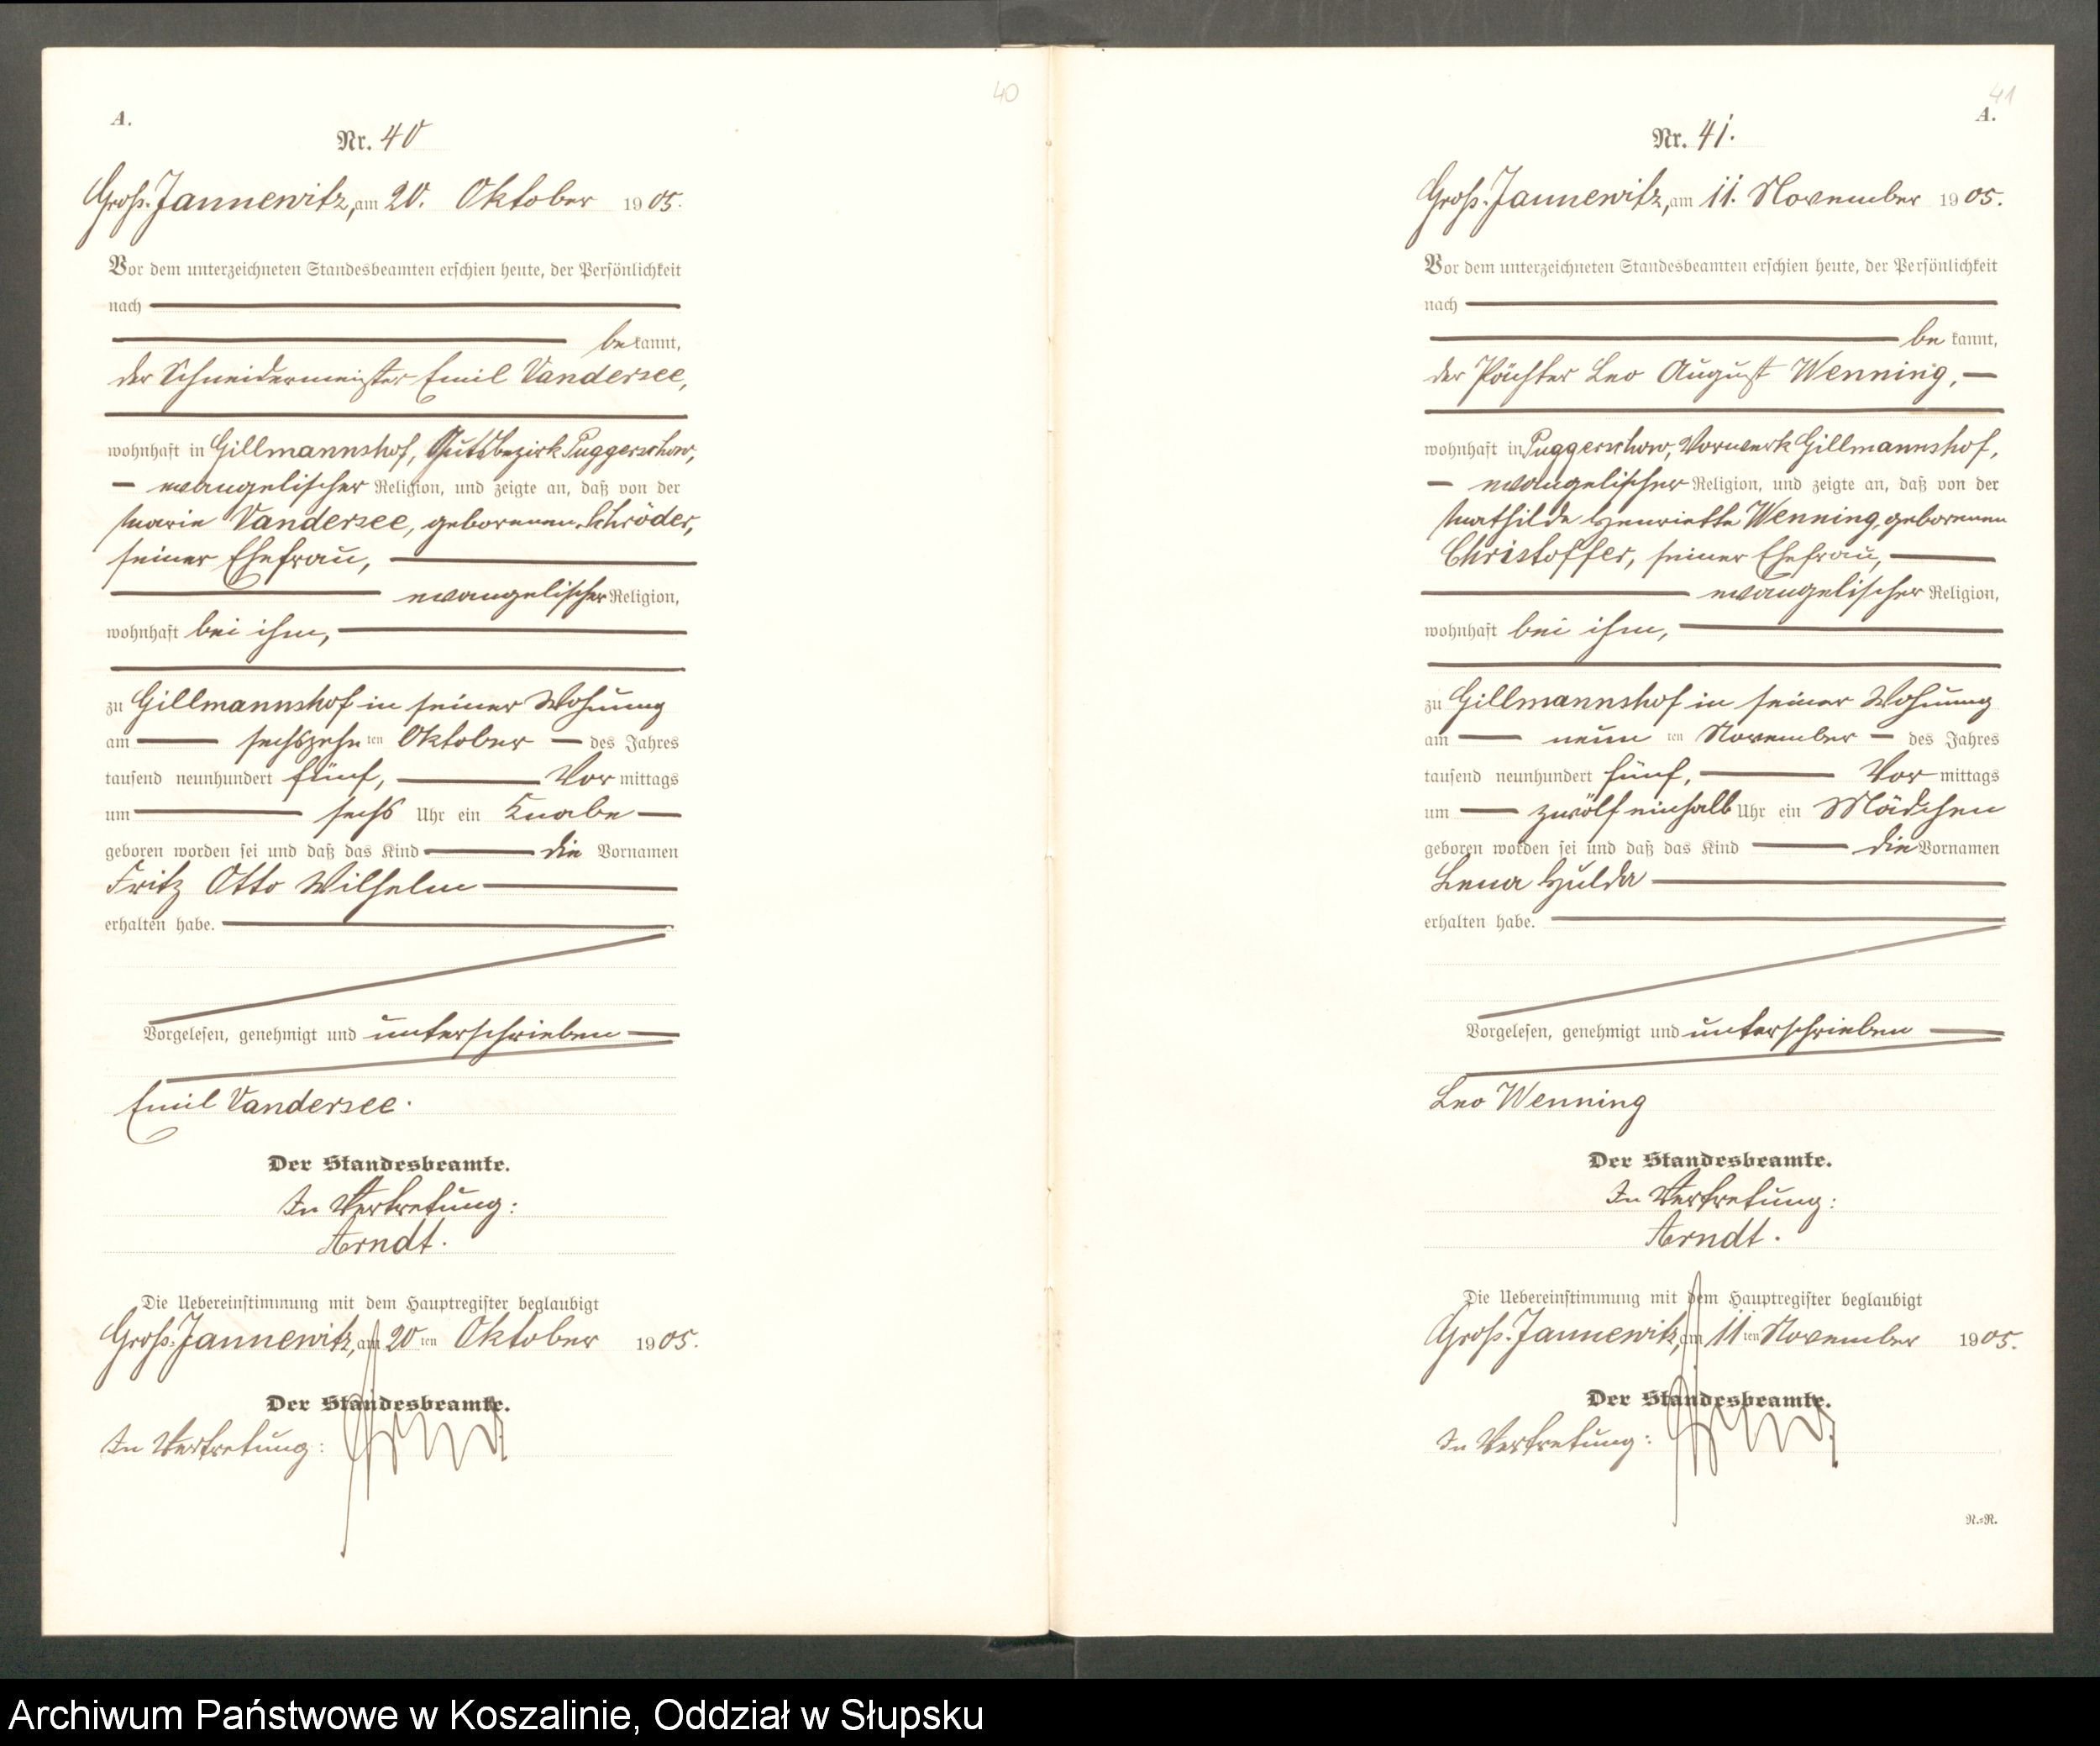 40
A.
Nr. 40
Groß-Jannewitz, am 20. Oktober 1905.
Vor dem unterzeichneten Standesbeamten erschien heute, der Persönlichkeit
nach
bekannt,
der Schneidermeister Emil Vandersee,
wohnhaft in Gillmannshof, Gutsbezirk Puggerschow,
evangelischer Religion, und zeigte an, daß von der
Marie Vandersee, geborenen Schröder,
seiner Ehefrau,
evangelischer Religion,
wohnhaft bei ihm,
zu Gillmannshof in seiner Wohnung
am sechszehnten Oktober des Jahres
tausend neunhundert fünf, Vormittags
um sechs Uhr ein Knabe
geboren worden sei und daß das Kind die Vornamen
Fritz Otto Wilhelm
erhalten habe.
Vorgelesen, genehmigt und unterschrieben
Emil Vandersee.
Der Standesbeamte.
In Vertretung:
Arndt.
Die Uebereinstimmung mit dem Hauptregister beglaubigt
Groß-Jannewitz, am 20ten Oktober 1905.
Der Standesbeamte.
In Vertretung: Arndt
41
A.
Nr. 41.
Groß-Jannewitz, am 11. November 1905.
Vor dem unterzeichneten Standesbeamten erschien heute, der Persönlichkeit
nach
bekannt,
der Pächter Leo August Wenning,
wohnhaft in Puggerschow, Vorwerk Gillmannshof,
evangelischer Religion, und zeigte an, daß von der
Mathilde Henriette Wenning, geborenen
Christoffer, seiner Ehefrau,
evangelischer Religion,
wohnhaft bei ihm,
zu Gillmannshof in seiner Wohnung
am neunten November des Jahres
tausend neunhundert fünf, Vormittags
um zwölfeinhalb Uhr ein Mädchen
geboren worden sei und daß das Kind die Vornamen
Lena Hulda
erhalten habe.
Vorgelesen, genehmigt und unterschrieben
Leo Wenning
Der Standesbeamte.
In Vertretung:
Arndt.
Die Uebereinstimmung mit dem Hauptregister beglaubigt
Groß-Jannewitz, am 11ten November 1905.
Der Standesbeamte.
In Vertretung: Arndt
N.=R.
Archiwum Państwowe w Koszalinie, Oddział w Słupsku